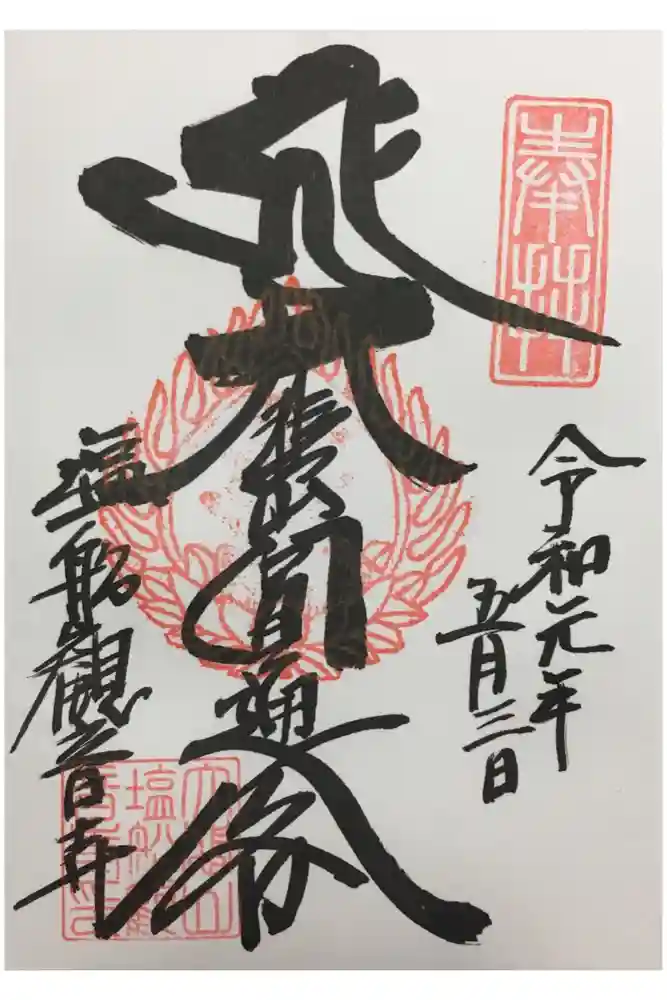 奉拝
令和元年
五月三日
大悲圓通
塩船観音寺
大悲山
塩船観